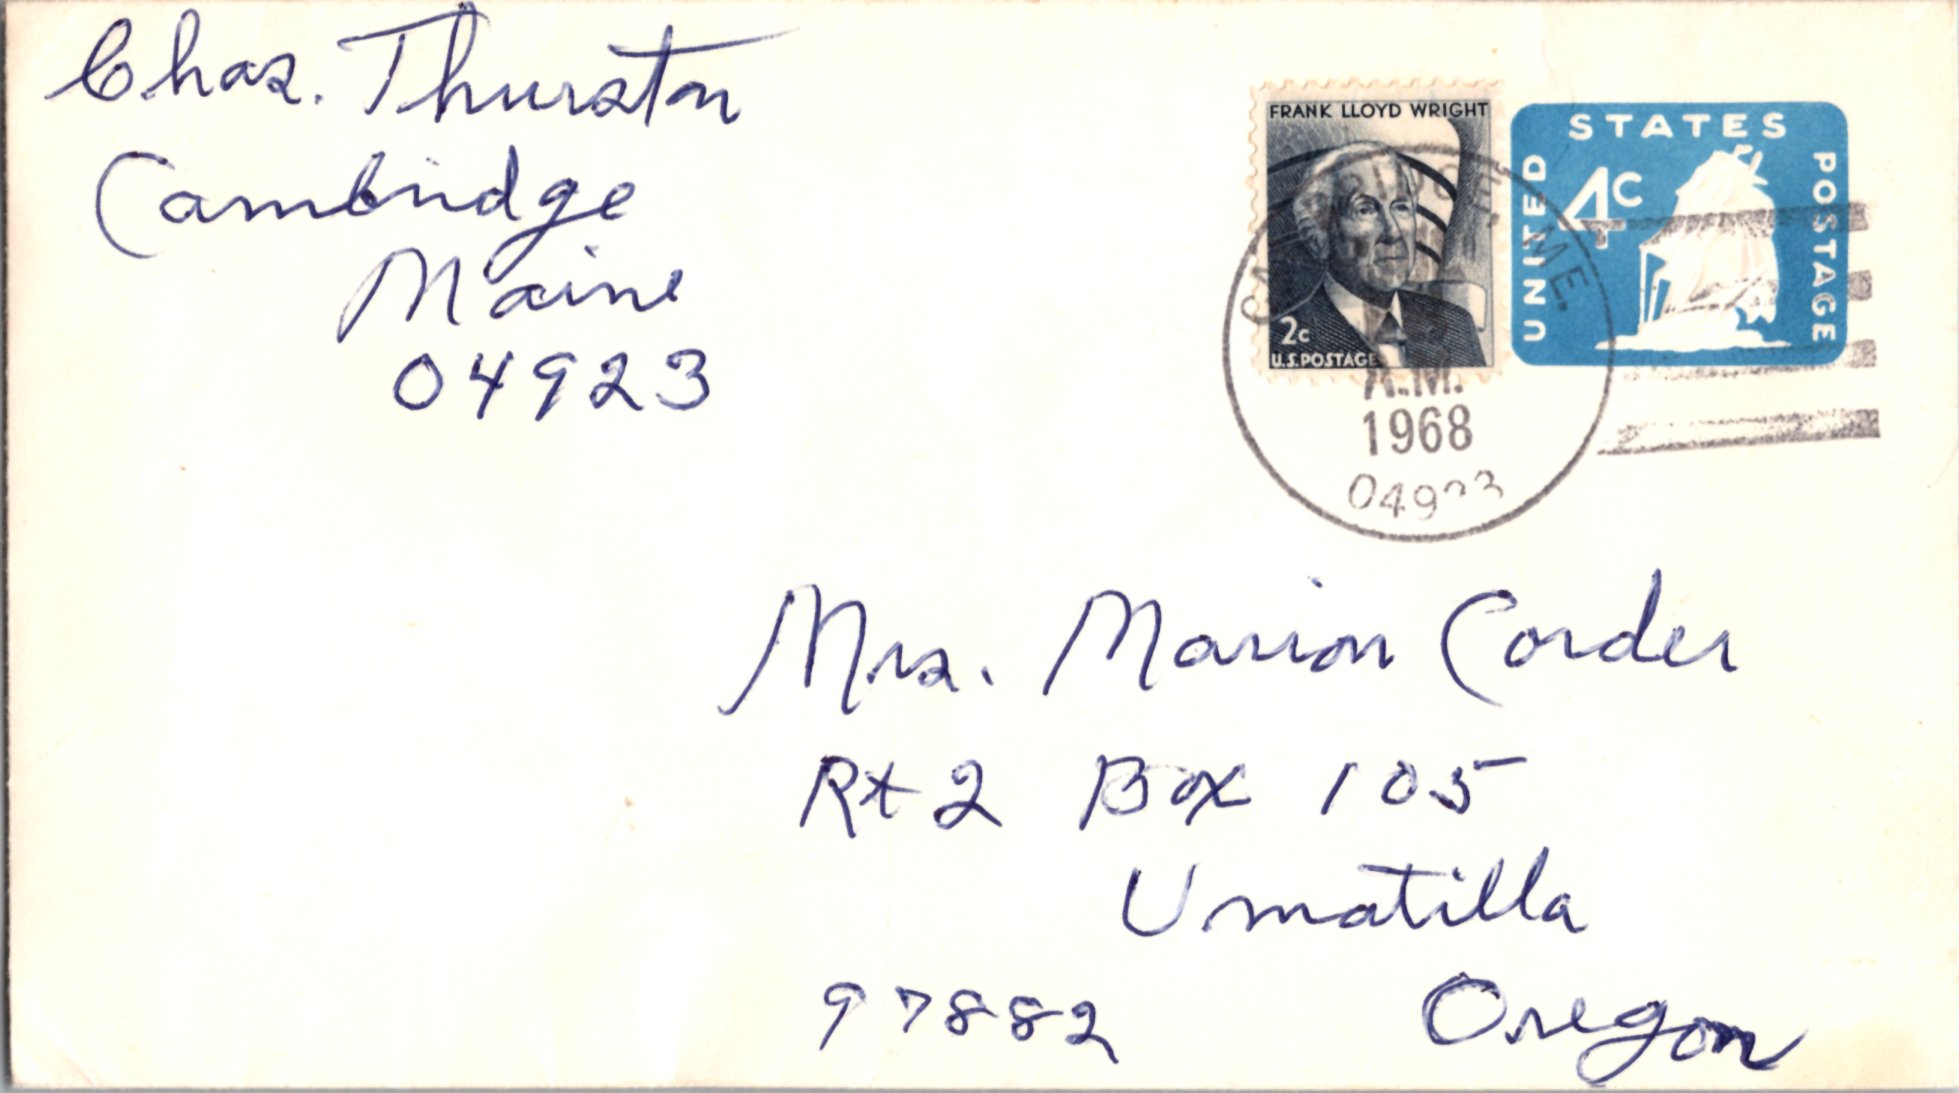 Chas. Thurston
Cambridge
Maine
04923
FRANK LLOYD WRIGHT
2c
U.S. POSTAGE
UNITED STATES POSTAGE
4c
CAMBRIDGE, ME.
A.M.
1968
04923
Mrs. Marion Corder
Rt 2 Box 105
Umatilla
97882 Oregon